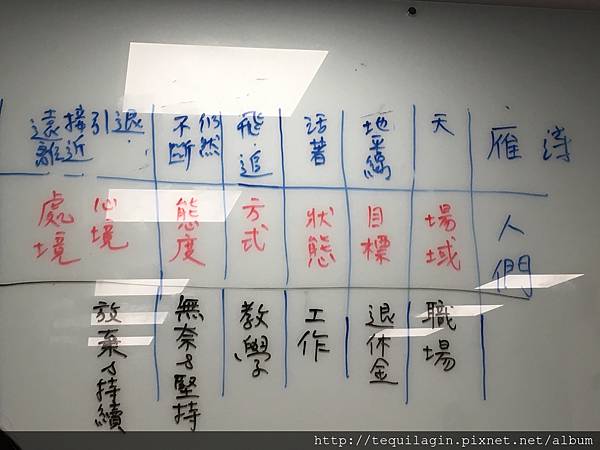 詩
雁
天
地平線
活著
飛、追
仍然
不斷
退
引
接近
遠離
人們
場域
目標
狀態
方式
態度
心境
處境
職場
退休金
工作
教學
無奈&堅持
放棄&持續
http://tequilagin.pixnet.net/album